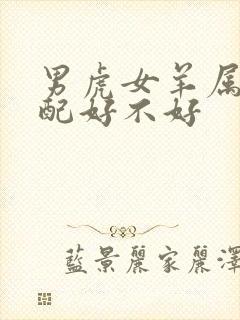 男虎女羊属
配好不好
藍景麗家麗澤